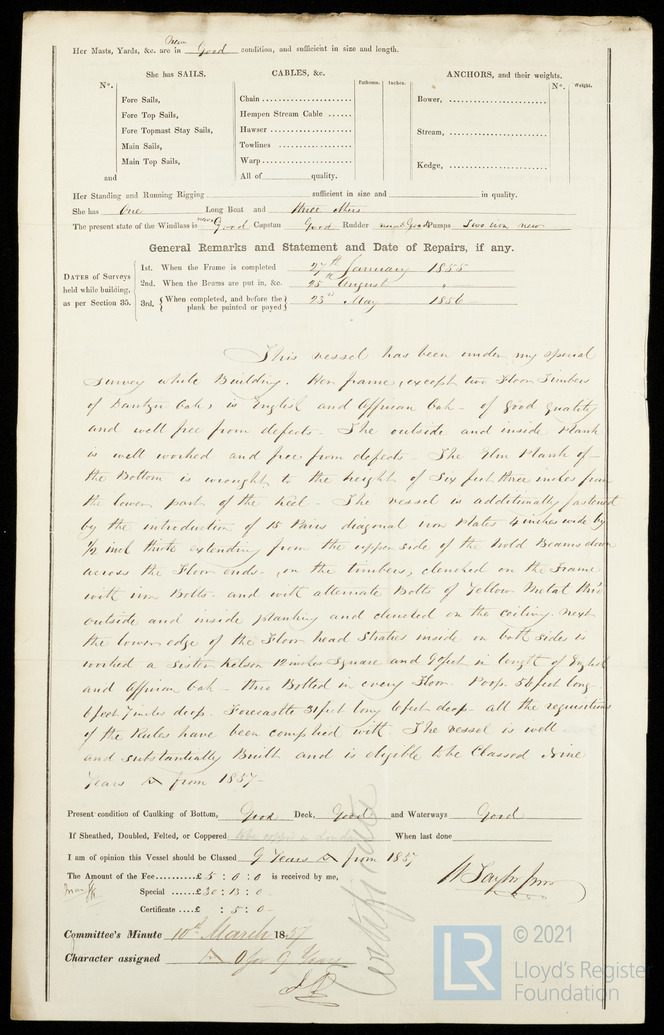 Her Masts, Yards, &c. are in New Good condition, and sufficient in size and length.
She has SAILS.
CABLES, &c.
ANCHORS, and their weights.
N°.
Fathoms.
Inches.
N°.
Weight.
Fore Sails,
Fore Top Sails,
Fore Topmast Stay Sails,
Main Sails,
Main Top Sails,
and
Chain
Hempen Stream Cable
Hawser
Towlines
Warp
All of quality.
Bower,
Stream,
Kedge,
Her Standing and Running Rigging sufficient in size and in quality.
She has One Long Boat and three others
The present state of the Windlass is new & Good Capstan Good Rudder new & Good Pumps Two iron new
General Remarks and Statement and Date of Repairs, if any.
DATES of Surveys held while building, as per Section 35.
1st. When the Frame is completed 27th January 1855
2nd. When the Beams are put in, &c. 25th August "
3rd. {When completed, and before the plank be painted or payed} 23rd May 1856
This vessel has been under my special
survey while Building. Her frame, except two Floor Timbers
of Dantzic Oak, is English and African Oak - of good quality
and well free from defects - The outside and inside Plank
is well worked and free from defects - The Elm Plank of
the Bottom is wrought to the height of Six feet three inches from
the lower part of the Keel - The vessel is additionally fastened
by the introduction of 15 Pairs diagonal iron Plates 4 inches wide by
1/2 inch thick extending from the upper side of the Hold Beams down
across the Floor ends, on the timbers, clenched on the Frame
with iron Bolts and with alternate Bolts of Yellow Metal thro'
outside and inside planking and clenched on the ceiling. Next
the lower edge of the Floor head Strakes inside on both sides is
worked a Sister Kelson 12 inches Square and 90 feet in length of English
and African Oak - thro Bolted in every Floor. Poop 56 feet long
6 feet 7 inches deep. Forecastle 31 feet long 6 feet deep all the requisitions
of the Rules have been complied with. The vessel is well
and substantially Built and is eligible to be Classed Nine
Years A from 1857 -
Present condition of Caulking of Bottom, Good Deck, Good and Waterways Good
If Sheathed, Doubled, Felted, or Coppered to be coppd in London When last done
I am of opinion this Vessel should be Classed 9 Years A from 1857
The Amount of the Fee £5 : 0 : 0 is received by me,
Special £30 : 13 : 0
Certificate £ : 5 : 0
W Taylor Junr
Certificate
Committee's Minute 10th March 1857
Character assigned A for 9 Years
© 2021
LR
Lloyd's Register
Foundation